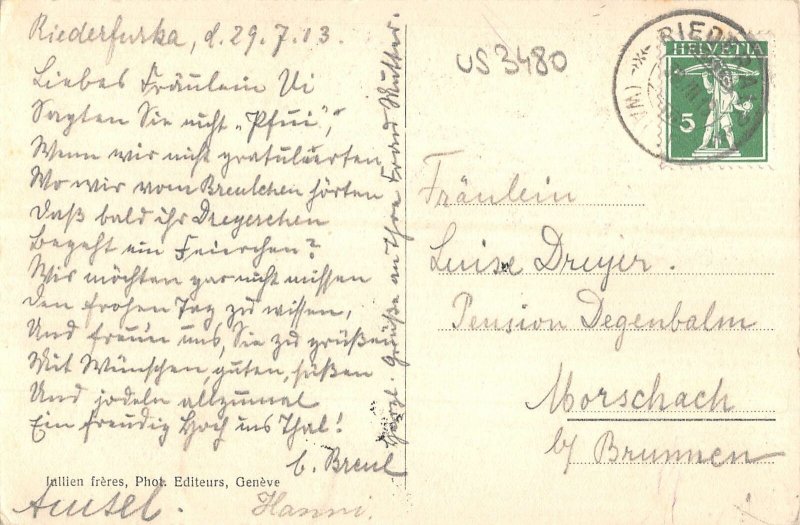 Riederfurka, d. 29.7.13.
Liebes Fräulein Vi
Sagten Sie nicht „Pfui“,
Wenn wir nicht gratulierten
Wo wir vom Breulchen hörten
Daß bald ihr Dreyerchen
Begeht ein Feierchen?
Wir möchten gar nicht missen
den frohen Tag zu wissen,
Und freun uns, Sie zu grüßen
Mit Wünschen, guten, süßen
Und jodeln allzumal
Ein freudig Hoch ins Thal!
Breul
Amsel.
Hanni.
Herzl. Grüße an Ihre Frau Mutter.
Jullien frères, Phot. Editeurs, Genève
US3480
HELVETIA
5
Fräulein
Luise Dreyer.
Pension Degenbalm
Morschach
b/ Brunnen